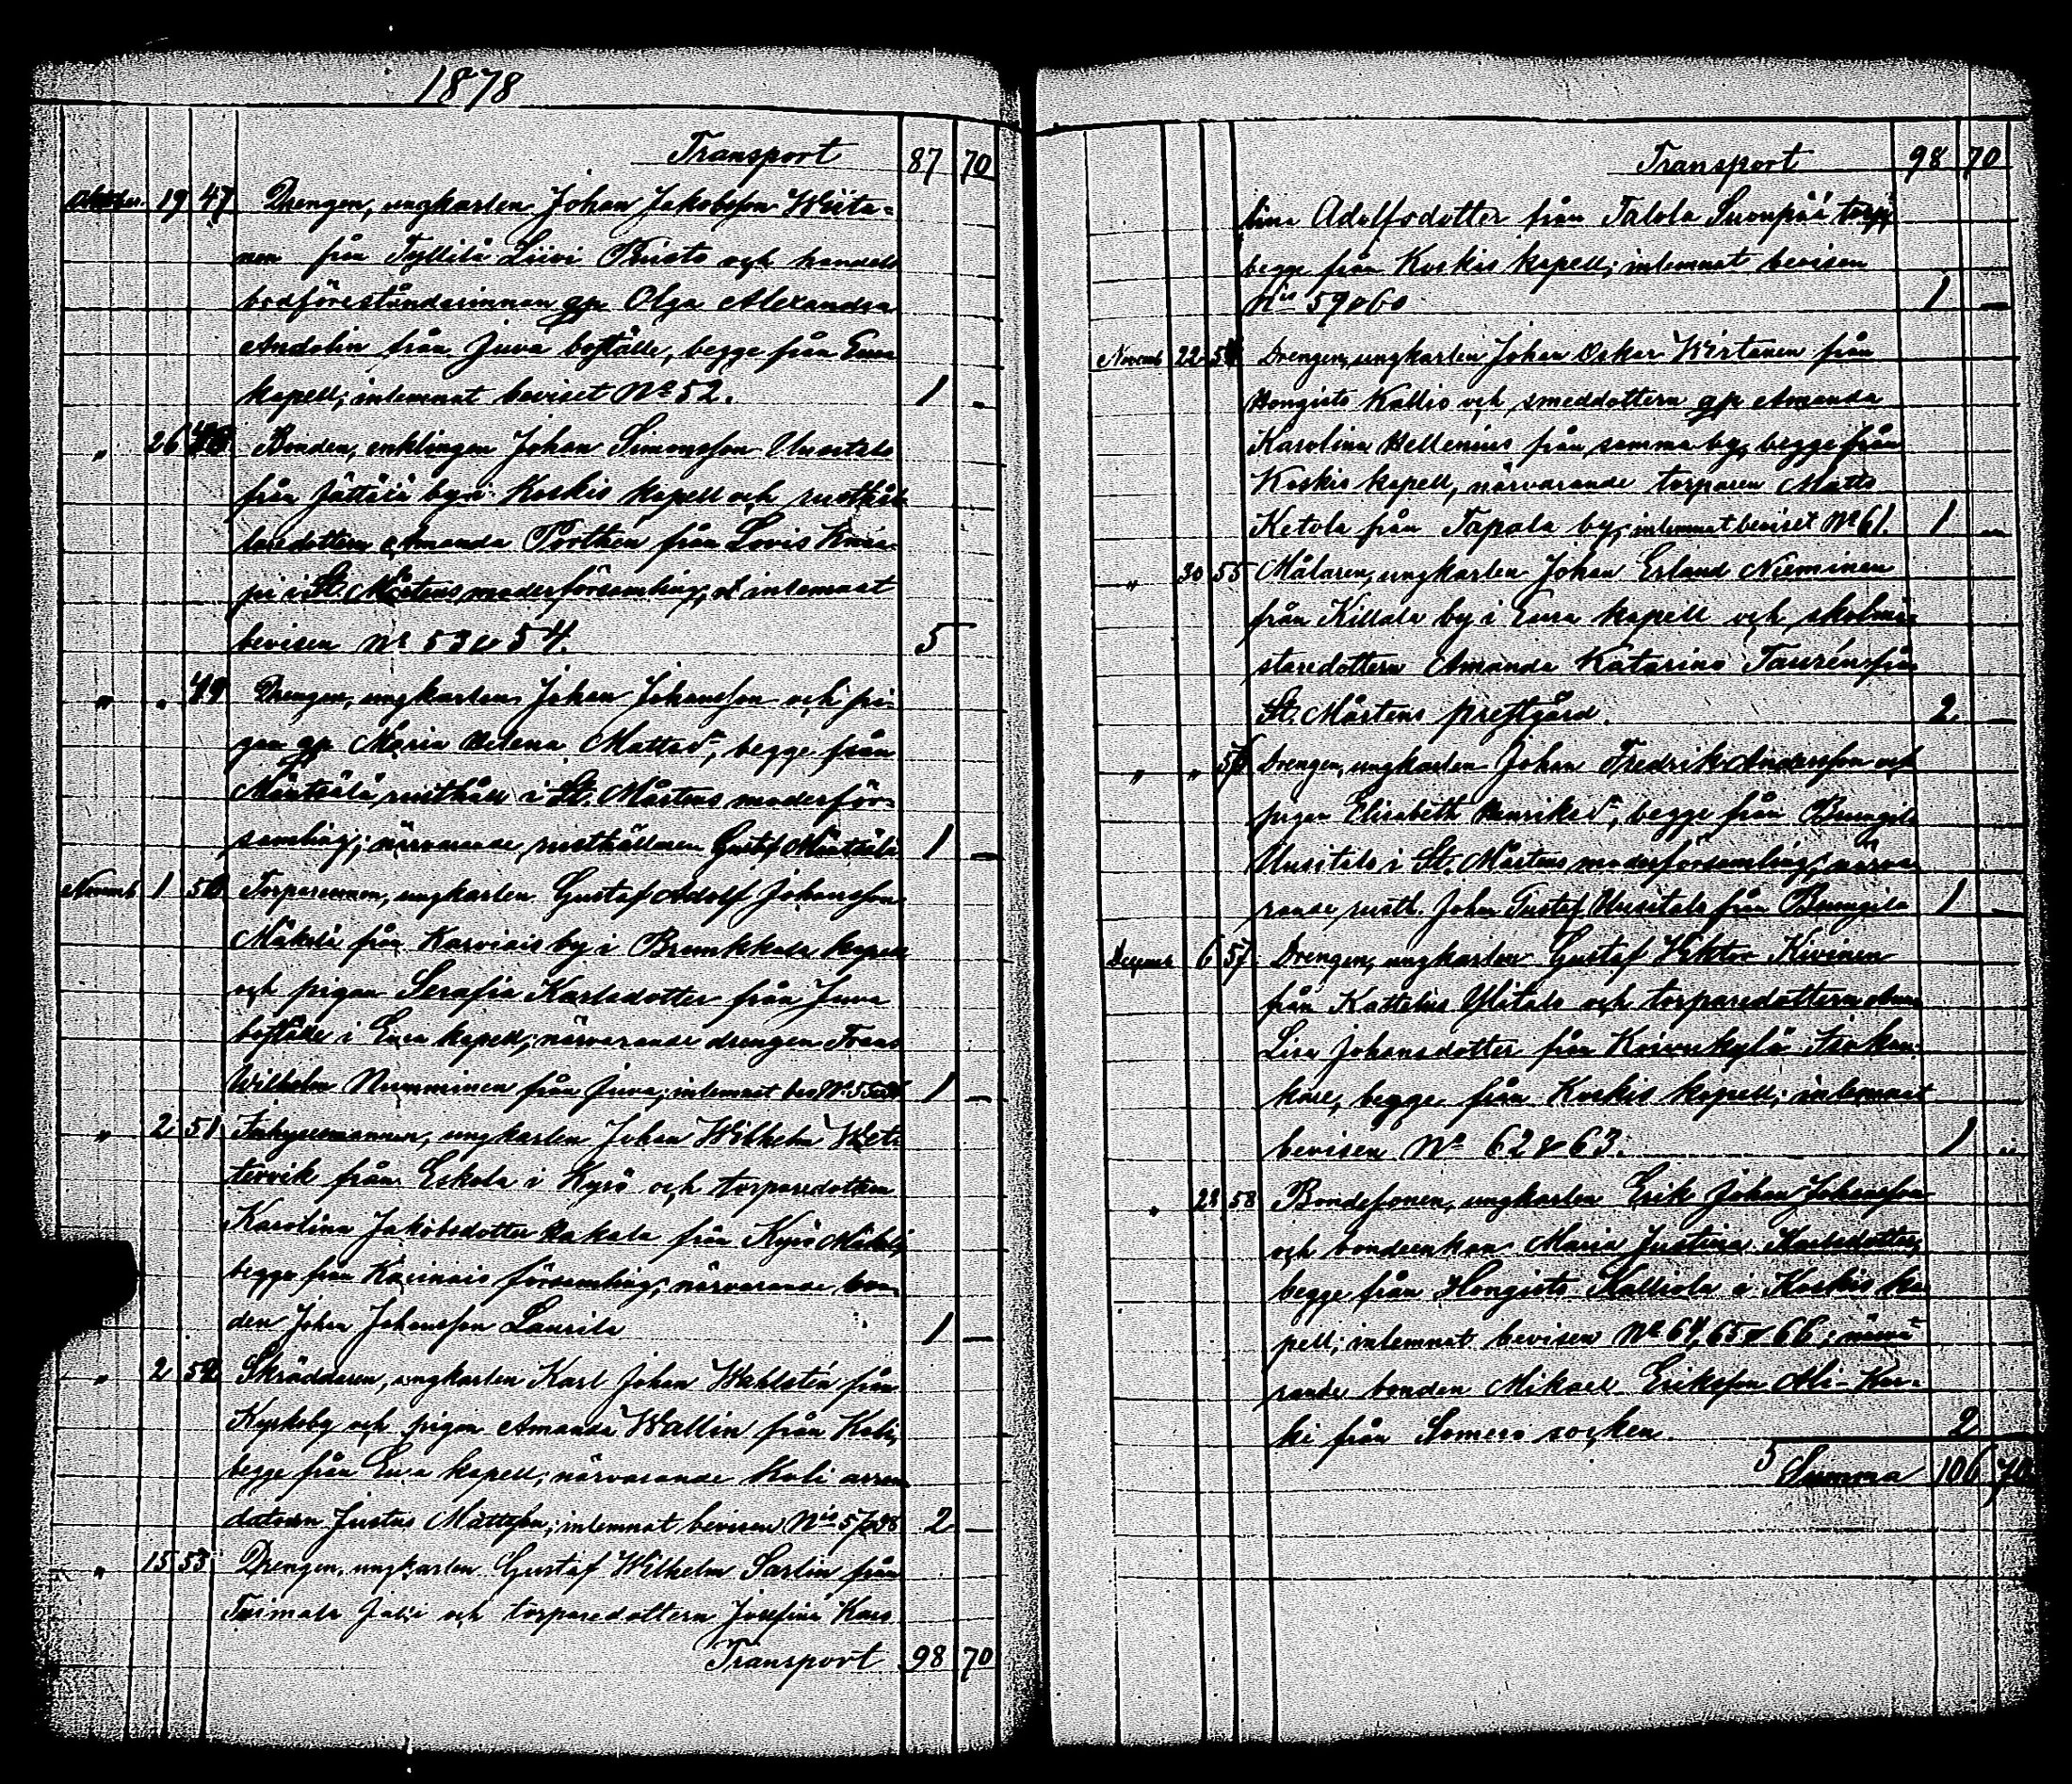 1878
Transport 87 70
Oktober 19 47 Drengen, ungkarlen Johan Jakobsson Wiita-
nen från Tyllilä Liivi Puisto och handels
bodföreståndarinnan qp Olga Alexandra
Andelin från Juva boställe, begge från Eura
kapell; inlemnat beviset No 52. 1 -
" 26 48 Bonden, enklingen Johan Simonsson Uusitalo
från Jättälä by i Koskis kapell och rusthål-
laredottern Amanda Porthén från Lovis Knaa-
pi i St. Mårtens moderförsamling; inlemnat
bevisen No 53 & 54. 5
" " 49 Drengen, ungkarlen Johan Johansson och pi-
gan qp Maria Helena Mattsdr, begge från
Mäntsälä rusthåll i St. Mårtens moderför-
samling; närvarande rusthållaren Gustaf Mäntsälä 1 -
Novemb 1 50 Torparesonen, ungkarlen Gustaf Adolf Johansson
Mäkelä från Karviais by i Brunkkala kapell
och pigan Serafia Karlsdotter från Juva
boställe i Eura kapell; närvarande drengen Frans
Wilhelm Numminen från Juva; inlemnat bev No 55 1 -
" 2 51 Inhysesmannen, ungkarlen Johan Wilhelm Wet-
tervik från Eskola i Kyrö och torparedottern
Karolina Jakobsdotter Hakala från Kyrö Mikola,
begge från Karinais församling; närvarande bon-
den Johan Johansson Laurila 1 -
" 2 52 Skräddaren, ungkarlen Karl Johan Wahlstén från
Kyrkoby och pigan Amanda Wallin från Koli,
begge från Eura kapell; närvarande Koli arren-
datorn Justus Mattsson; inlemnat bevisen Nis 57 & 58 2 -
" 15 53 Drengen, ungkarlen Gustaf Wilhelm Sarlin från
Tuimala Jali och torparedottern Josefina Karo-
Transport 98 70
Transport 98 70
lina Adolfsdotter från Talola Suonpää torp,
begge från Koskis kapell; inlemnat bevisen
Nis 59 & 60 1 -
Novemb 22 54 Drengen, ungkarlen Johan Oskar Wirtanen från
Hongisto Kallio och smeddottern qp Amanda
Karolina Hellenius från samma by, begge från
Koskis kapell, närvarande torparen Matts
Ketola från Tapala by; inlemnat beviset No 61. 1 -
" 30 55 Målaren, ungkarlen Johan Erland Nieminen
från Killala by i Eura kapell och skolmä-
staredottern Amanda Katarina Taurén från
St. Mårtens prestgård. 2 -
" " 56 Drengen, ungkarlen Johan Fredrik Andersson och
pigan Elisabeth Henriksdr, begge från Ruungila
Uusitalo i St. Mårtens moderförsamling; närva-
rande rusth. Johan Gustaf Uusitalo från Ruungila 1 -
Decemb 6 57 Drengen, ungkarlen Gustaf Viktor Kivinen
från Kattelus Ylitalo och torparedottern Anna
Lisa Johansdotter från Koivukylä Isokan-
kare, begge från Koskis kapell; inlemnat
bevisen No 62 & 63. 1 "
" 28 58 Bondesonen, ungkarlen Erik Johan Johansson
och bondeenkan Maria Justina Karlsdotter,
begge från Hongisto Kalliola i Koskis ka-
pell; inlemnat bevisen No 64, 65 & 66; närva-
rande bonden Mikael Eriksson Ali-Kur-
ki från Somero socken. 2
Summa 106 70